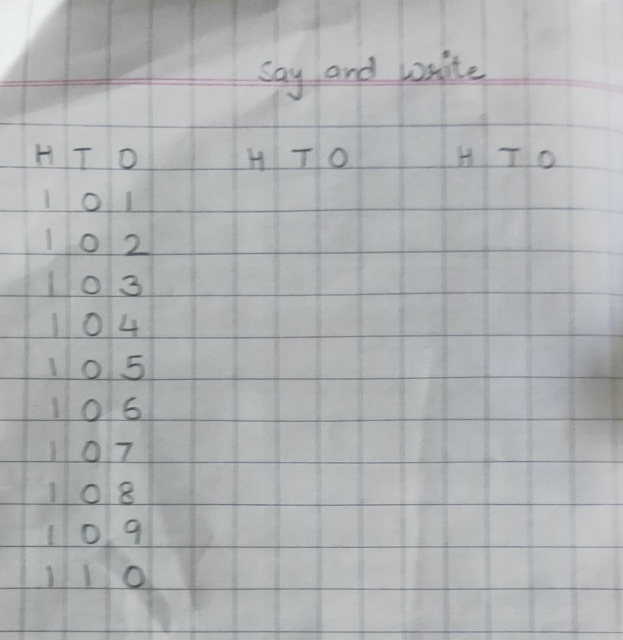 Say and write
H T O H T O H T O
1 0 1
1 0 2
1 0 3
1 0 4
1 0 5
1 0 6
1 0 7
1 0 8
1 0 9
1 1 0